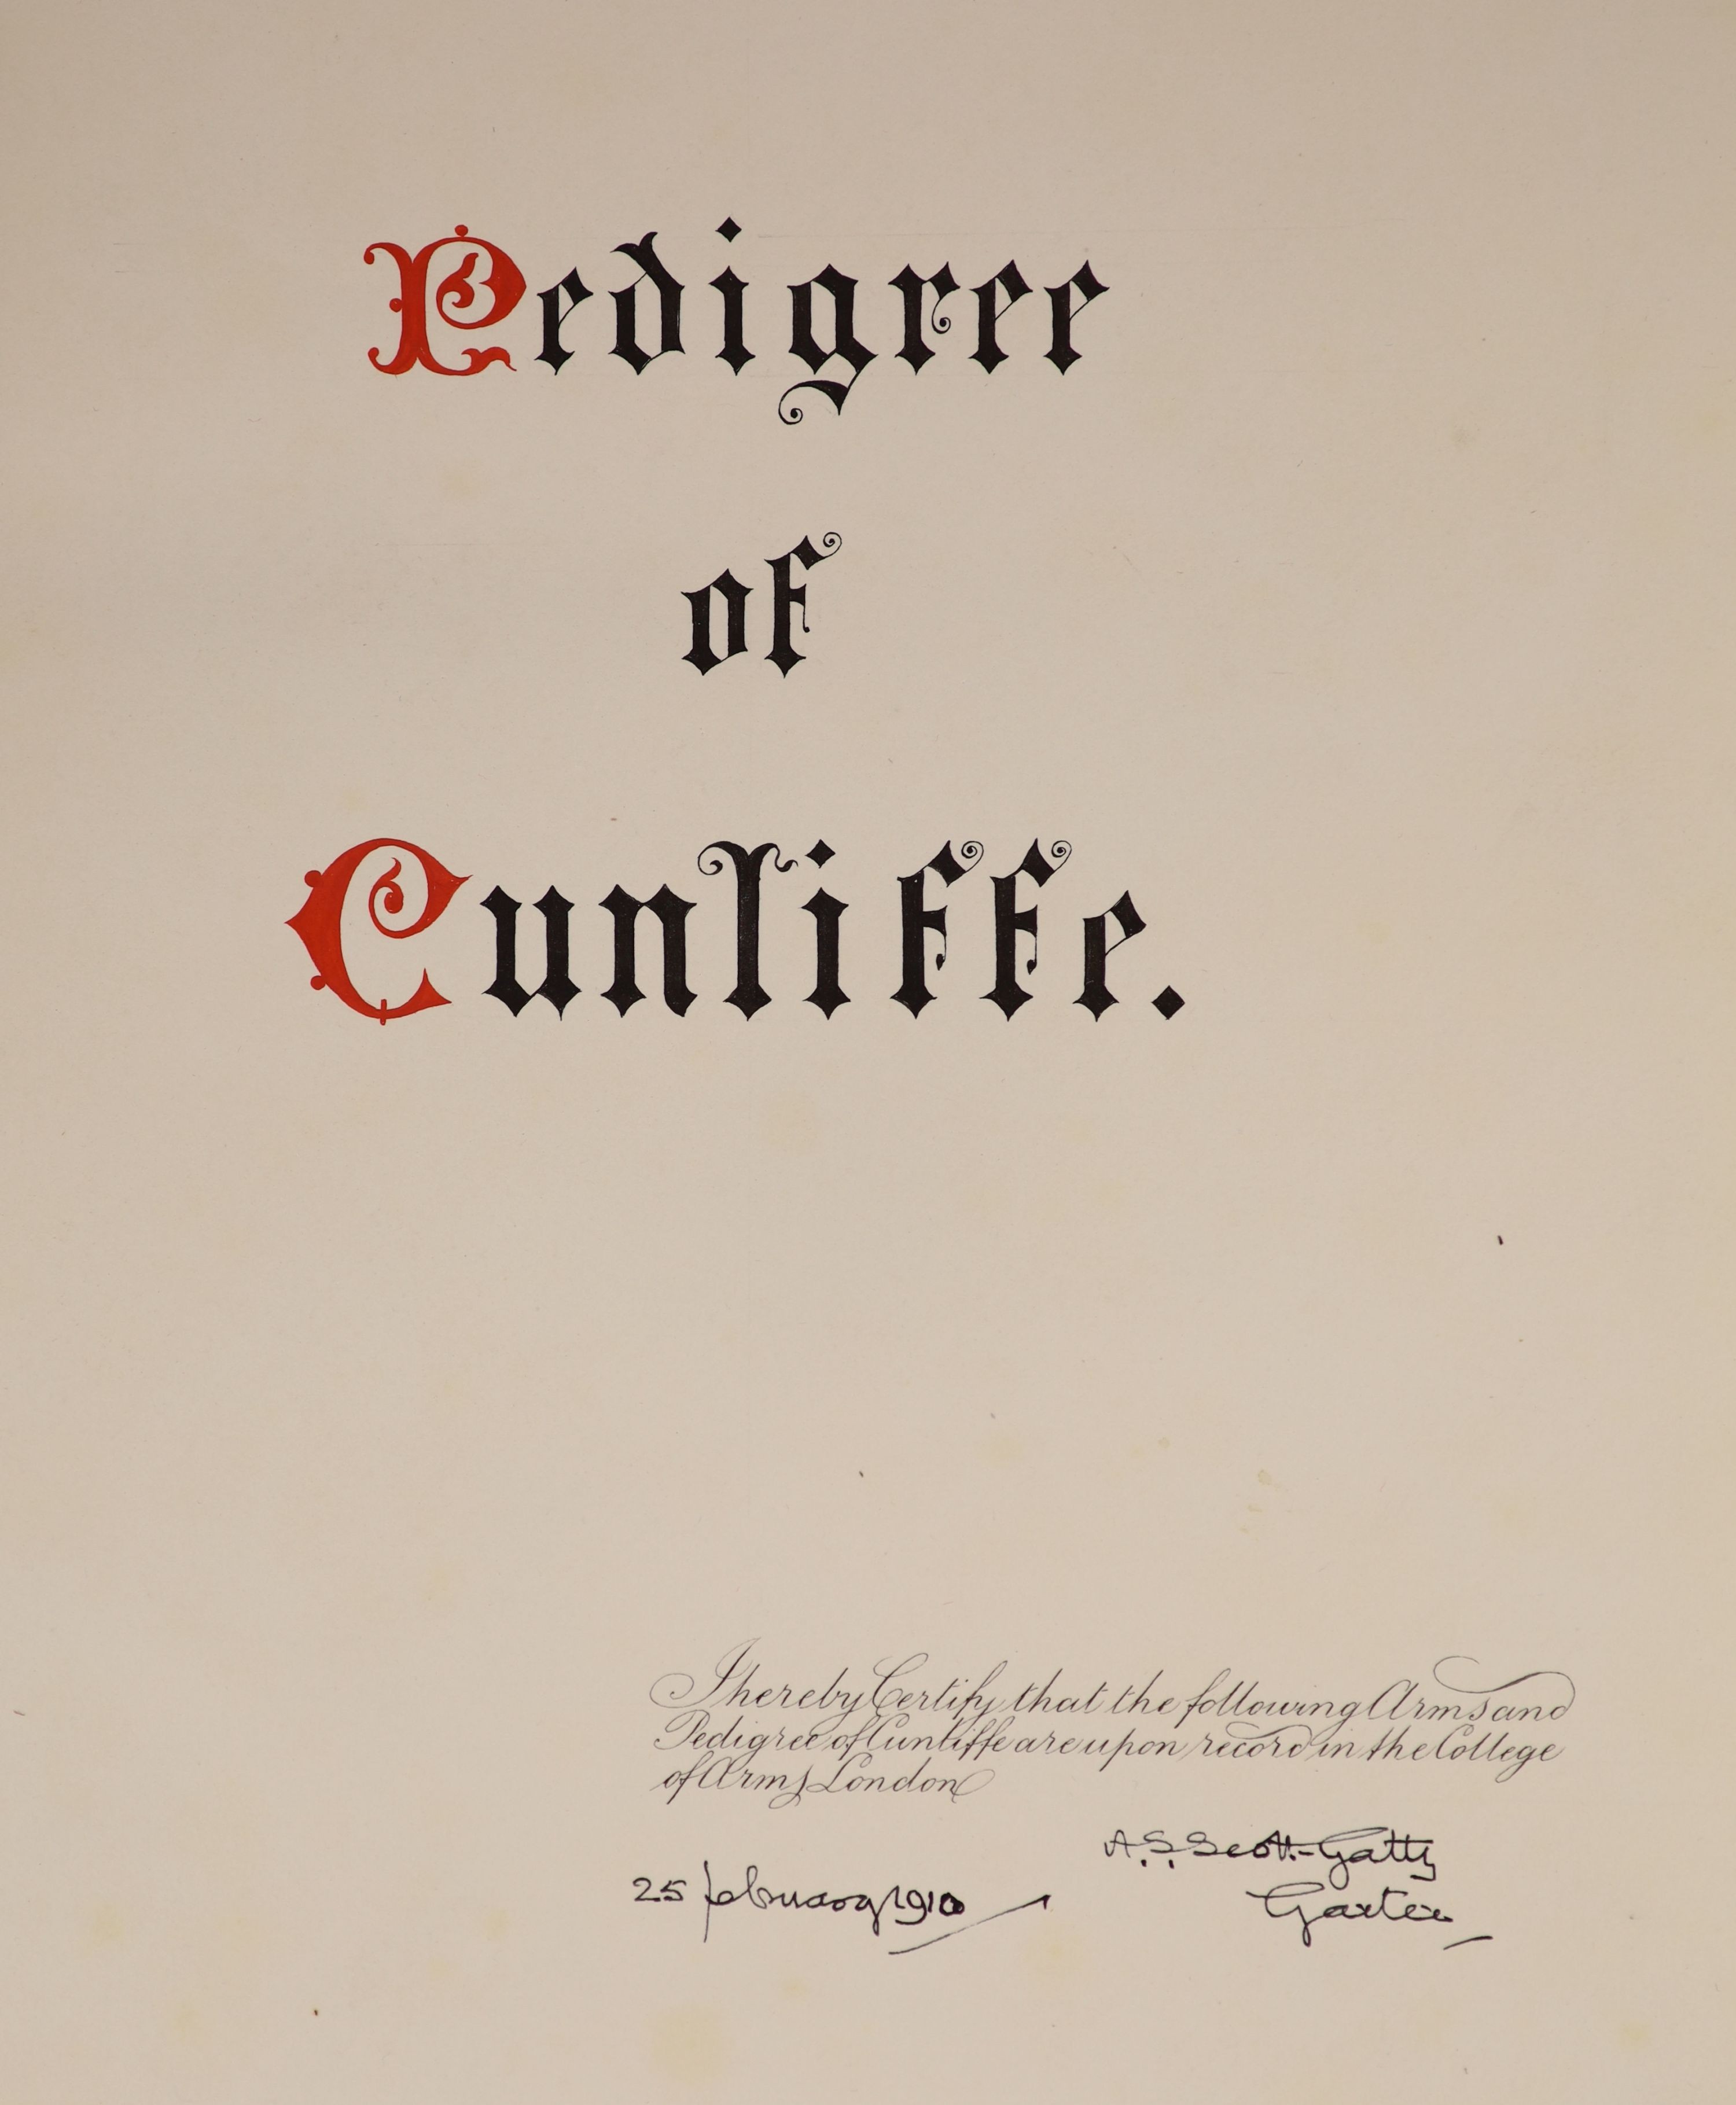 Pedigree
of
Cunliffe.
I hereby Certify that the following Arms and
Pedigree of Cunliffe are upon record in the College
of Arms London
A.S. Scott-Gatty
25 february 1910
Garter